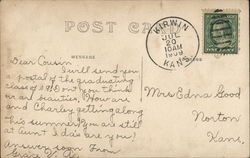 POST CARD
KIRWIN
JUL
20
10AM
1909
KANS.
MESSAGE
Dear Cousin
I will send you
a postal of the graduating
class of 1909 don't you think
we are beauties, How are
and Charley getting along
this summer? you are still
at Aunt Ida's are you?
Answer soon From
Mrs Edna Good
Norton
Kans.